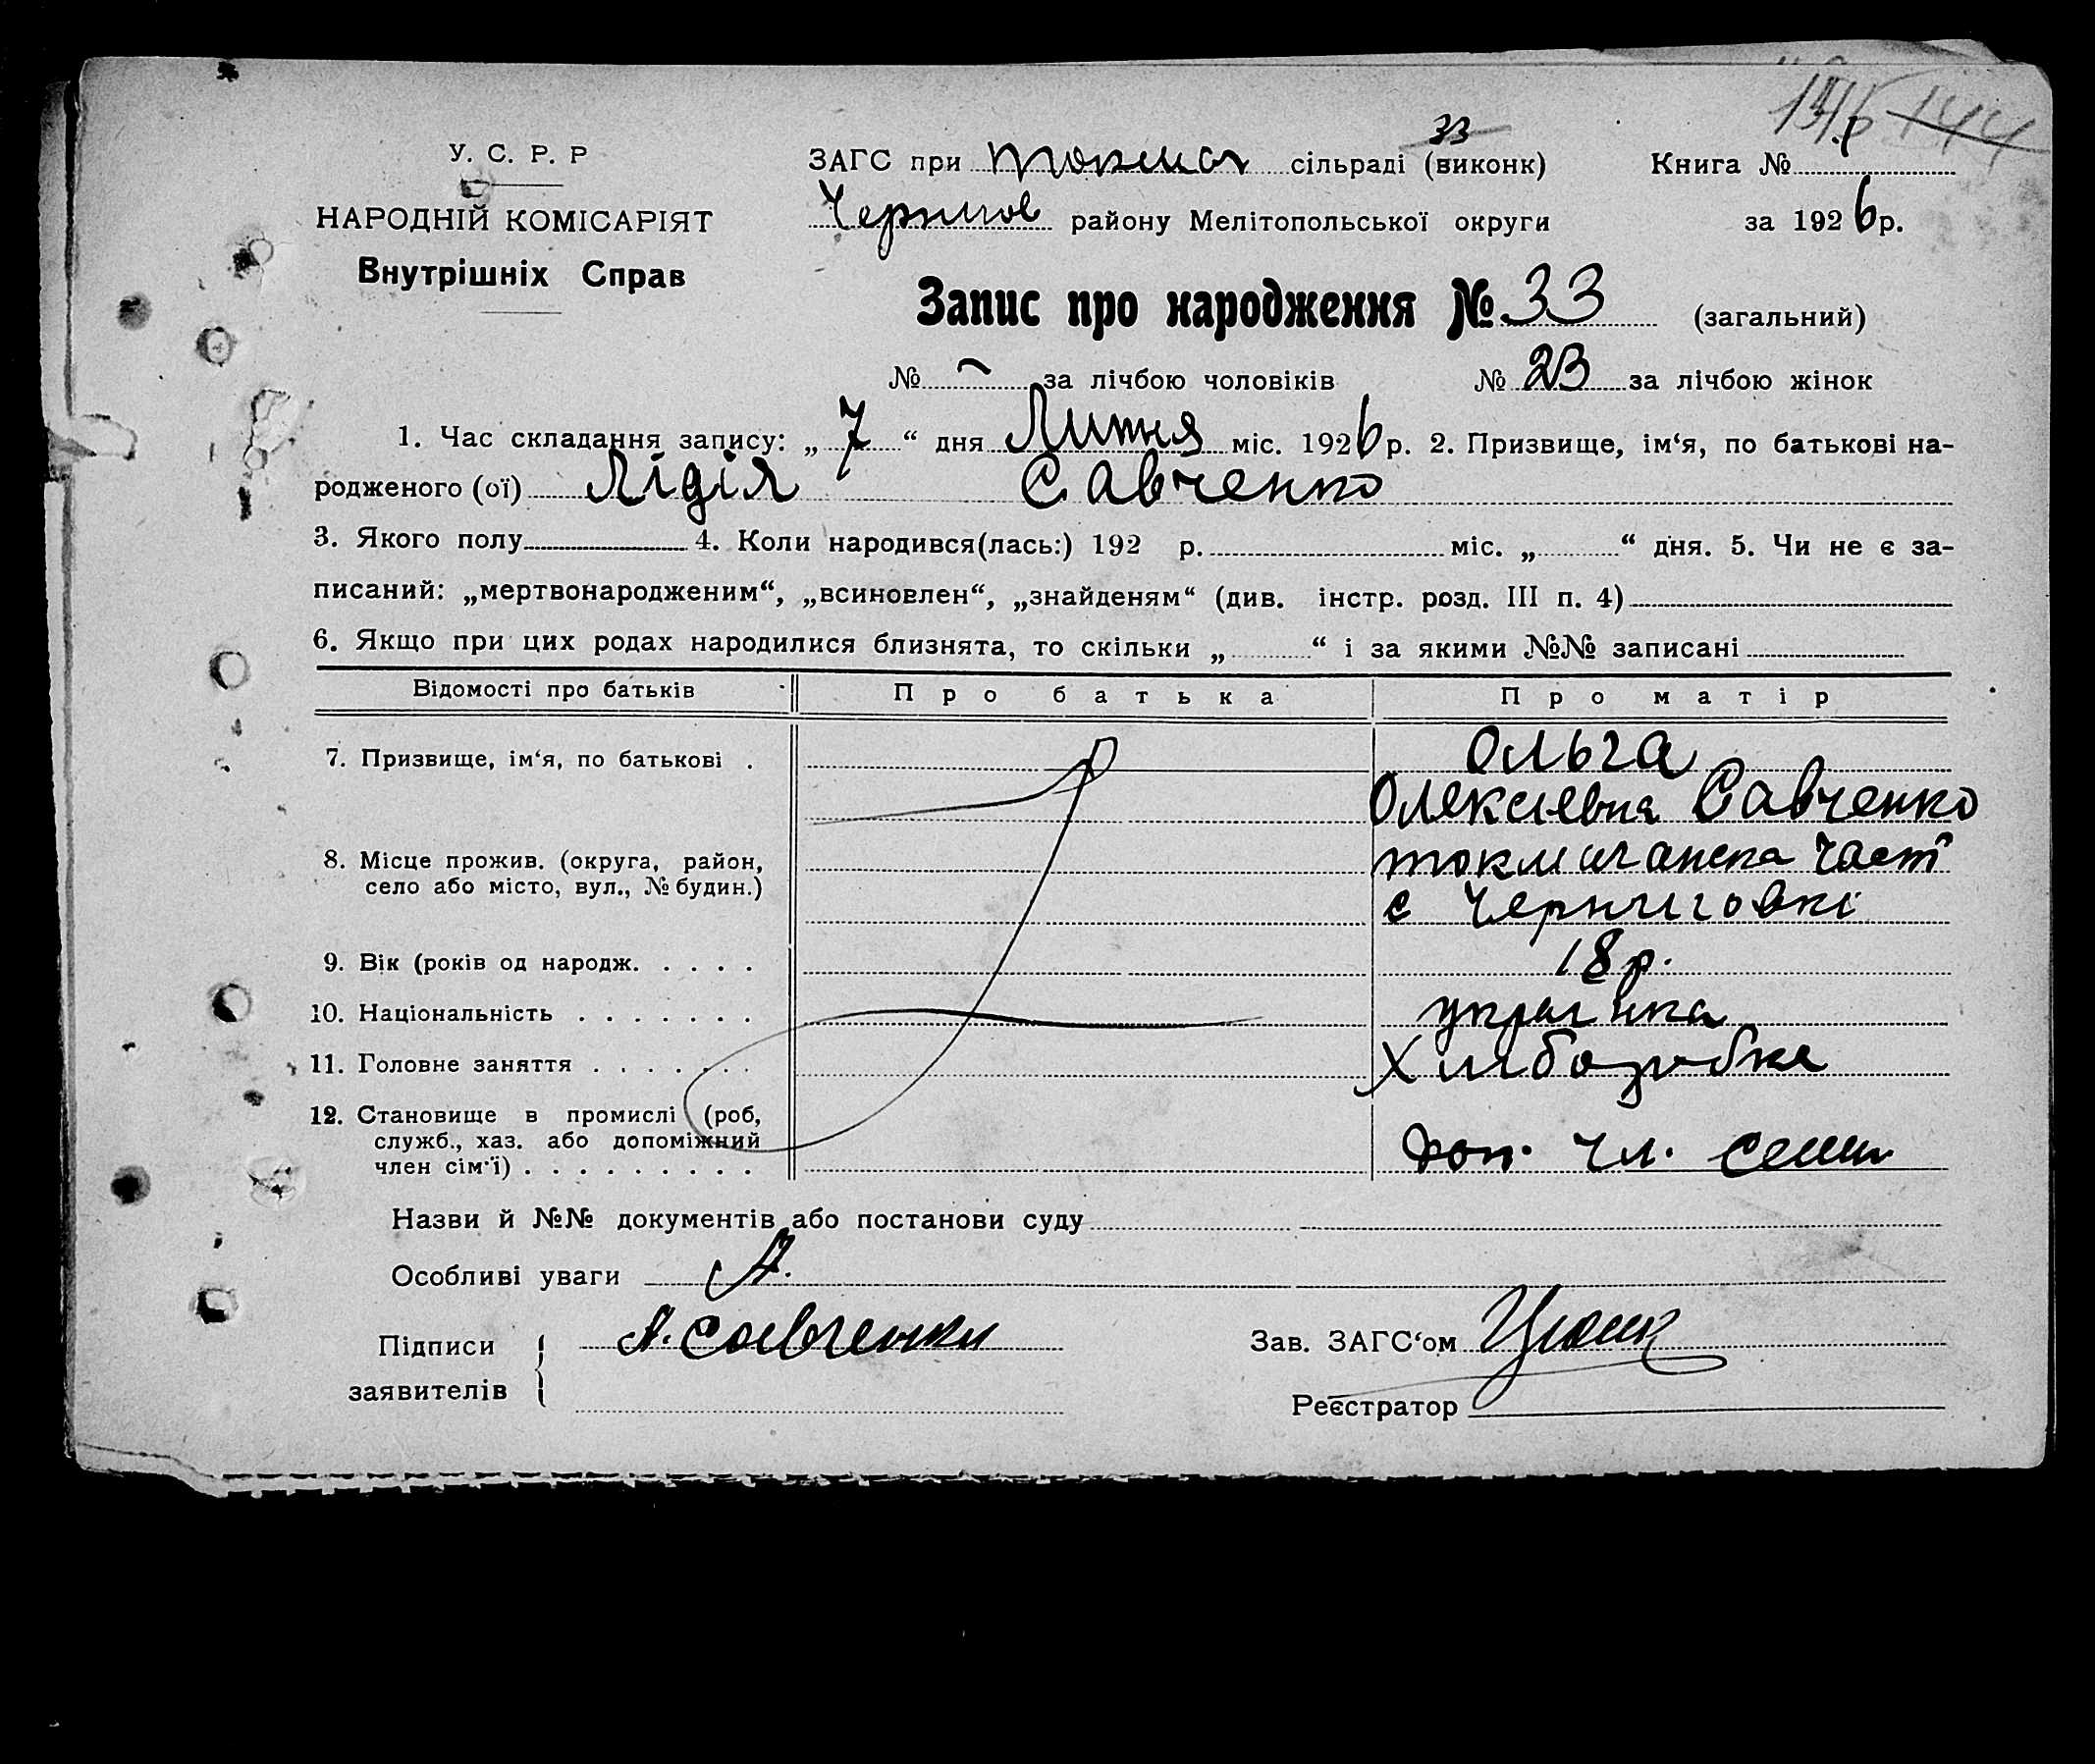 145 144
У. С. Р. Р
НАРОДНІЙ КОМІСАРІЯТ
Внутрішніх Справ
33
ЗАГС при Токмач сільраді (виконк) Книга №
Чернигов району Мелітопольської округи за 1926 р.
Запис про народження № 33 (загальний)
№ – за лічбою чоловіків № 23 за лічбою жінок
1. Час складання запису: „ 7 “ дня Липня міс. 1926 р. 2. Призвище, ім‘я, по батькові на-
родженого (ої) Лідія Савченко
3. Якого полу 4. Коли народився(лась:) 192 р. міс. „ “ дня. 5. Чи не є за-
писаний: „мертвонародженим“, „всиновлен“, „знайденям“ (див. інстр. розд. III п. 4)
6. Якщо при цих родах народилися близнята, то скільки „ “ і за якими №№ записані
Відомості про батьків Про батька Про матір
7. Призвище, ім‘я, по батькові . Ольга
Олексиевна Савченко
8. Місце прожив. (округа, район, село або місто, вул., № будин.) токмачанска част
с Черниговкі
9. Вік (років од народж. . . . . 18 р.
10. Національність . . . . . . . украінка
11. Головне заняття . . . . . . . Хлиборобка
12. Становище в промислі (роб,
служб., хаз. або допоміжний
член сім‘ї) . . . . . . . . . Доп. чл. семи
Назви й №№ документів або постанови суду
Особливі уваги
Підписи А. Савченко Зав. ЗАГС‘ом
заявителів Реєстратор